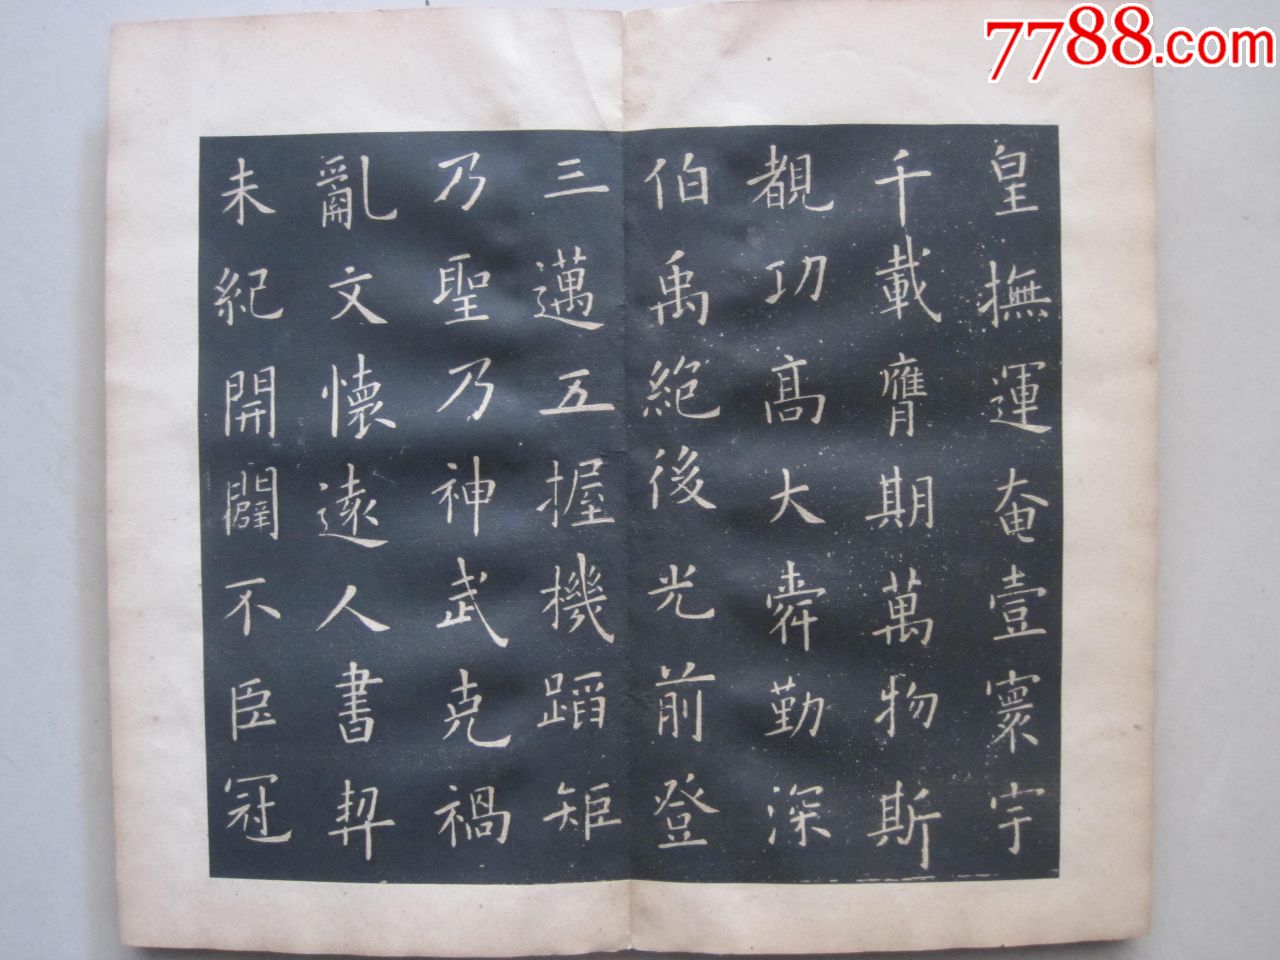 7788.com
皇撫運奄壹寰宇
千載膺期萬物斯
覩功高大舜勤深
伯禹絶後光前登
三邁五握機蹈矩
乃聖乃神武克禍
亂文懷遠人書契
未紀開闢不臣冠